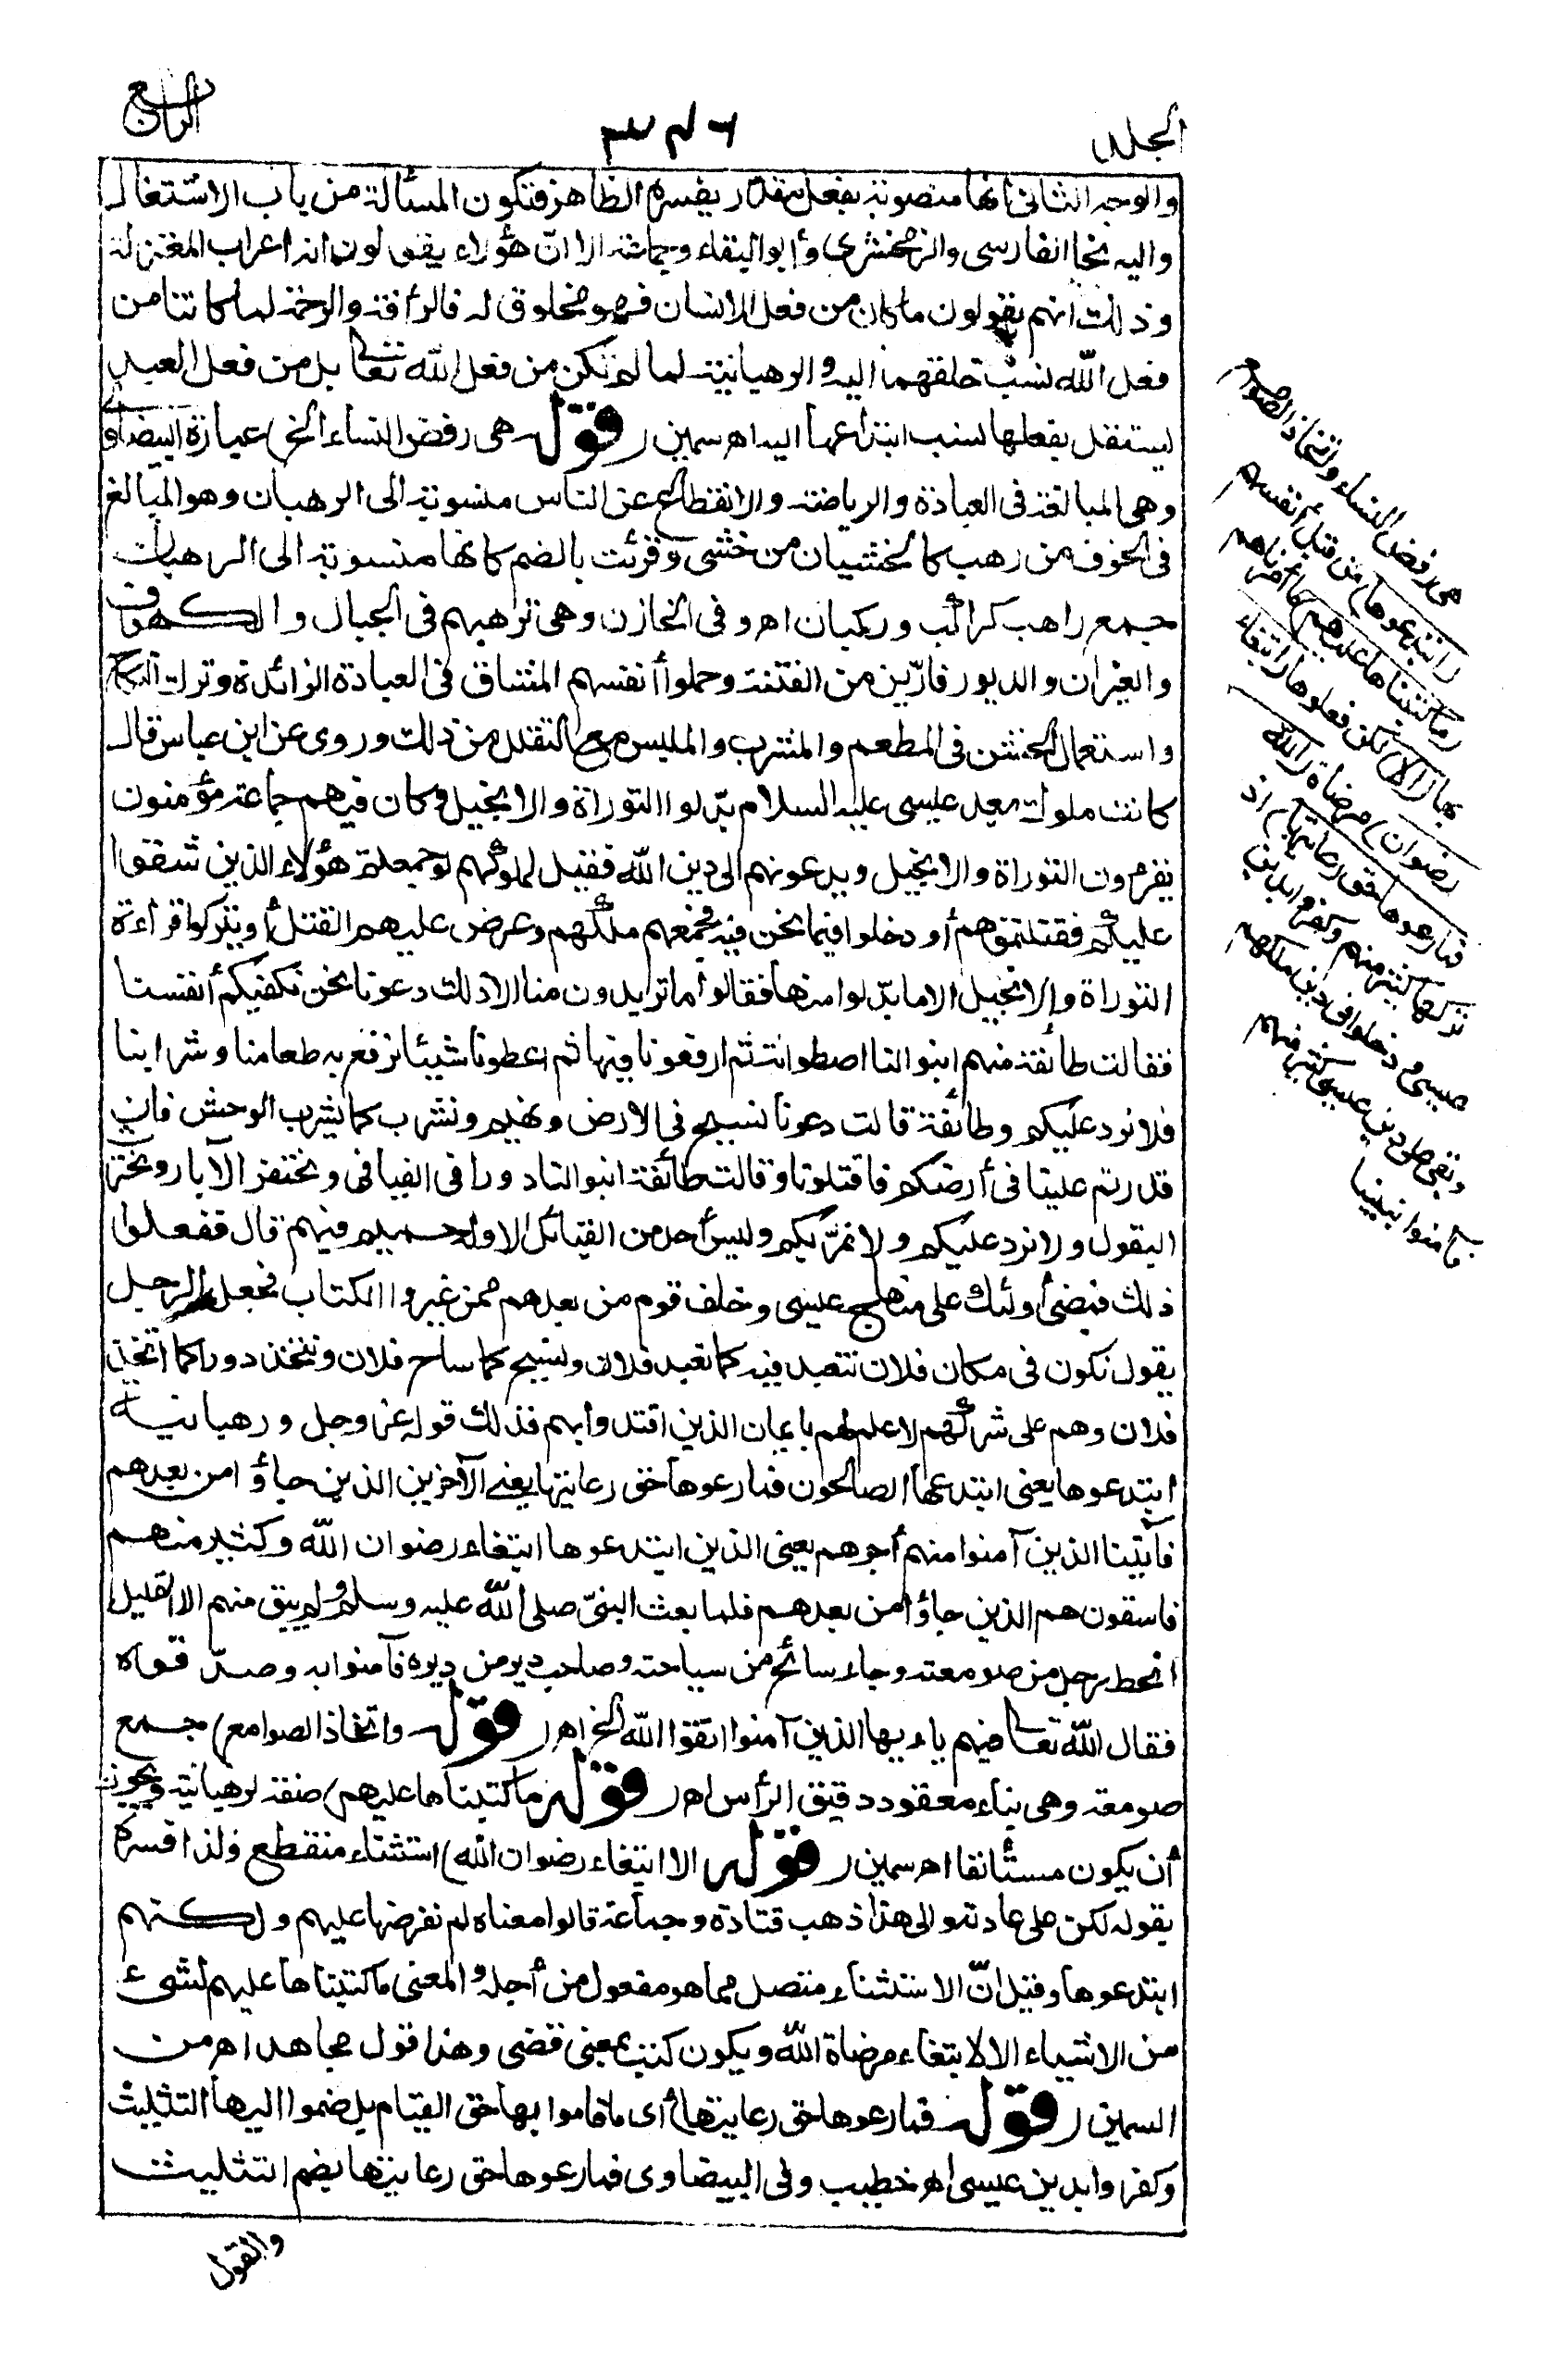 المجلد
٣٤٦
الرابع
والوجه الثانى أنها منصوبة بفعل مقدّر يفسره الظاهر فتكون المسألة من باب الاشتغال
واليه نحا الفارسى والزمخشرى وأبو البقاء وجماعة الا انّ هؤلاء يقولون انه اعراب المعتزلة
وذلك انهم يقولون ما كان من فعل الانسان فهو مخلوق له فالرأفة والرحمة لما كانتا من
فعل الله نسب خلقهما اليه والرهبانية لما لم تكن من فعل الله تعالى بل من فعل العبد
يستقل بفعلها نسب ابتداعها اليه اهـ سمين (قوله هى رفض النساء الخ) عبارة البيضاوى
وهى المبالغة فى العبادة والرياضة والانقطاع عن الناس منسوبة الى الرهبان وهو المبالغ
فى الخوف من رهب كالخشيان من خشى وقرئت بالضم كانها منسوبة الى الرهبان
جمع راهب كراكب وركبان اهـ وفى الخازن وهى ترهبهم فى الجبال والكهوف
والغيران والديور فارّين من الفتنة وحملوا أنفسهم المشاق فى العبادة الزائدة وترك النكاح
واستعمال الخشن فى المطعم والمشرب والملبس مع التقلل من ذلك وروى عن ابن عباس قال
كانت ملوك بعد عيسى عليه السلام بدّلوا التوراة والانجيل وكان فيهم جماعة مؤمنون
يقرءون التوراة والانجيل ويدعونهم الى دين الله فقيل لملوكهم لو جمعتم هؤلاء الذين شقوا
عليكم فقتلتموهم أو دخلوا فيما نحن فيه فجمعهم ملكهم وعرض عليهم القتل أو يتركوا قراءة
التوراة والانجيل الا ما بدّلوا منها فقالوا ما تريدون منا الا ذلك دعونا نحن نكفيكم أنفسنا
فقالت طائفة منهم ابنوا لنا اصطوانة ثم ارفعونا فيها ثم اعطونا شيئا نرفع به طعامنا وشرابنا
فلا نرد عليكم وطائفة قالت دعونا نسيح فى الارض ونهيم ونشرب كما يشرب الوحش فان
قدرتم علينا فى أرضكم فاقتلونا وقالت طائفة ابنوا لنا دورا فى الفيافى ونحتفر الآبار ونحترث
البقول ولا نرد عليكم ولا نمرّ بكم وليس أحد من القبائل الا وله حميم فيهم قال ففعلوا
ذلك فمضى أولئك على منهاج عيسى وخلف قوم من بعدهم ممن غيروا الكتاب فجعل الرجل
يقول نكون فى مكان فلان نتعبد فيه كما تعبد فلان ونسيح كما ساح فلان ونتخذ دورا كما اتخذ
فلان وهم على شركهم لا علم لهم بايمان الذين اقتدوا بهم فذلك قوله عز وجل ورهبانية
ابتدعوها يعنى ابتدعها الصالحون فما رعوها حق رعايتها يعنى الآخرين الذين جاؤا من بعدهم
فآتينا الذين آمنوا منهم أجرهم يعنى الذين ابتدعوها ابتغاء رضوان الله وكثير منهم
فاسقون هم الذين جاؤا من بعدهم فلما بعث النبىّ صلى الله عليه وسلم ولم يبق منهم الا القليل
انحط رجل من صومعته وجاء سائح من سياحته وصاحب دير من ديره فآمنوا به وصدّقوه
فقال الله تعالى فيهم ياءيها الذين آمنوا اتقوا الله الخ اهـ (قوله واتخاذ الصوامع) جمع
صومعة وهى بناء معقود دقيق الرأس اهـ (قوله ما كتبناها عليهم) صفة لرهبانية ويجوز
أن يكون مستأنفا اهـ سمين (قوله الا ابتغاء رضوان الله) استثناء منقطع ولذا فسره
بقوله لكن على عادته والى هذا ذهب قتادة وجماعة قالوا معناه لم نفرضها عليهم ولكنهم
ابتدعوها وقيل انّ الاستثناء متصل مما هو مفعول من أجله والمعنى ما كتبناها عليهم لشىء
من الاشياء الا لابتغاء مرضاة الله ويكون كتب بمعنى قضى وهذا قول مجاهد اهـ من
السمين (قوله فما رعوها حق رعايتها) أى ما قاموا بها حق القيام بل ضموا اليها التثليث
وكفروا بدين عيسى اهـ خطيب وفى البيضاوى فما رعوها حق رعايتها بضم التثليث
والقول
هى رفض النساء واتخاذ الصوامع
(ابتدعوها) من قبل أنفسهم
(ما كتبناها عليهم) ما أمرناهم
بها (الا) لكن فعلوها (ابتغاء
رضوان) مرضاة (الله
فما رعوها حق رعايتها) اذ
تركها كثير منهم وكفروا بدين
عيسى ودخلوا فى دين ملكهم
وبقى على دين عيسى كثير منهم
فآمنوا بنبينا